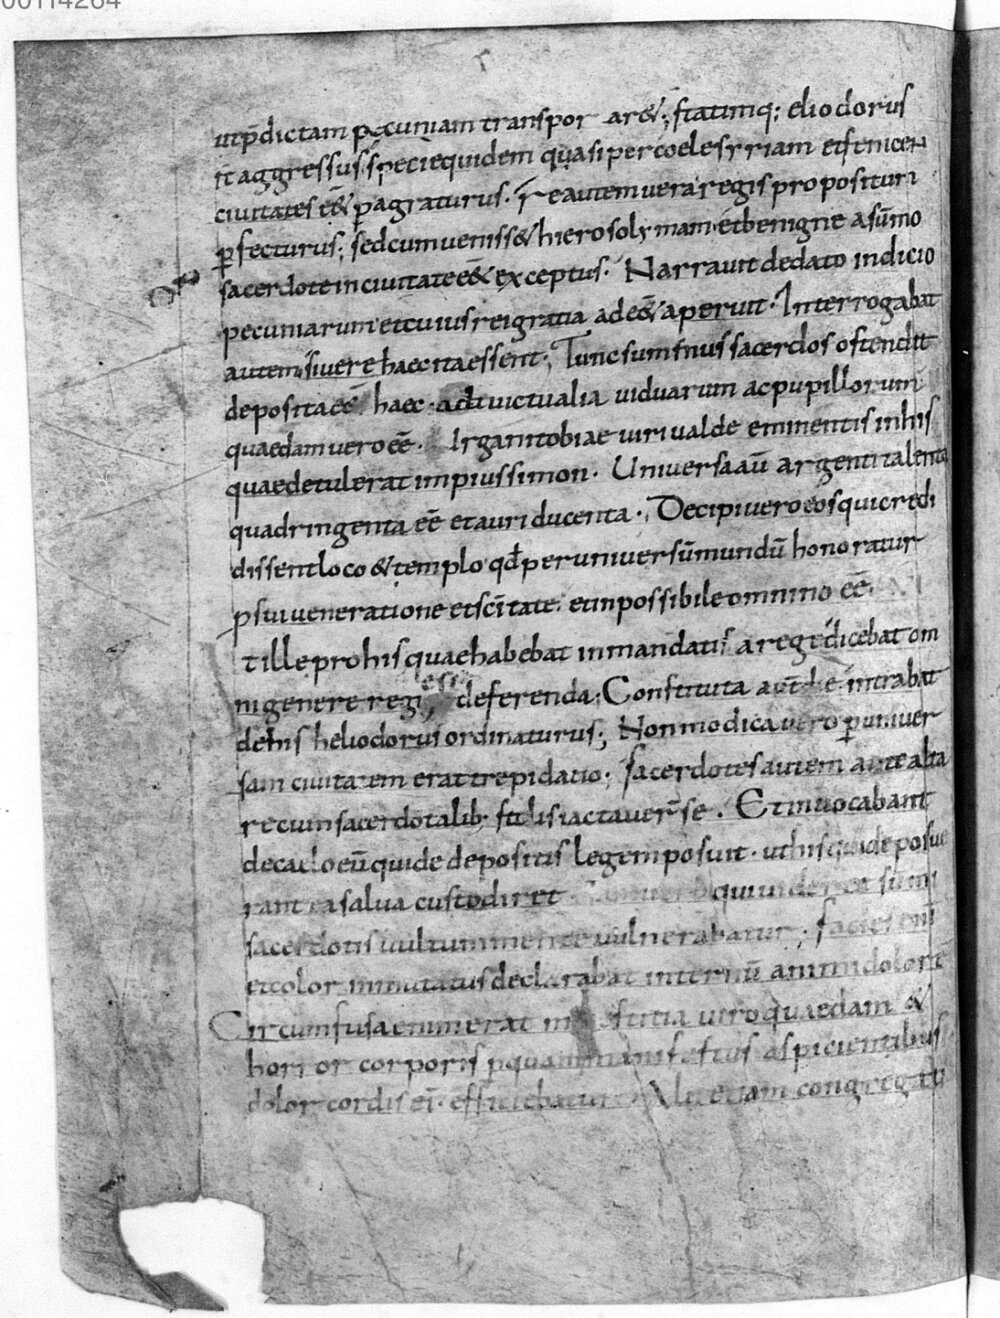 00114264
utp̄dictam pecuniam transpor ar&; statimq; eliodorus
it aggressus specie quidem quasi per coelesyriam et fenicen
ciuitates e& pagraturus. re autem uera regis propositum
ꝑfecturus; sed cum uenisset hierosolymam et benigne a sūmo
sacerdote in ciuitate e& exceptus. Narrauit de dato indicio
pecuniarum et cuius rei gratia ad e& aperuit. Interrogabat
autem si uere haec ita essent; Tunc summus sacerdos ostendit
deposita eē haec. ad uictualia uiduarum ac pupillorum
quaedam uero eē. Irganitobiae uiri ualde eminentis in his
quae detulerat impius simon. Uniuersa aū argenti talenta
quadringenta eē et auri ducenta. Decipi uero eos qui credi
dissent loco & templo qd̄ per uniuersū mundū honoratur
p sui ueneratione et scītate. et inpossibile omnino eē.
t ille pro his quae habebat in mandatis a rege dicebat om
ni genere regi esse deferenda; Constituta aut die intrabat
de his heliodorus ordinaturus; Non modica uero ꝑ uniuer
sam ciuitatem erat trepidatio; sacerdotes autem ante alta
re cum sacerdotalib; stolis iactauer̄ se. Et inuocabant
de caelo eū qui de depositis legem posuit. ut his qui deposue
rant ea salua custodiret qui uideret sūmi
sacerdotis uultum mente uulnerabatur; facies enī
et color inmutatus declarabat internū animi dolorē
Circumfusa enim erat mestitia uiro quaedam &
horror corporis p quam manifestus aspicientibus
dolor cordis ei. efficiebatur Alii etiam congregati